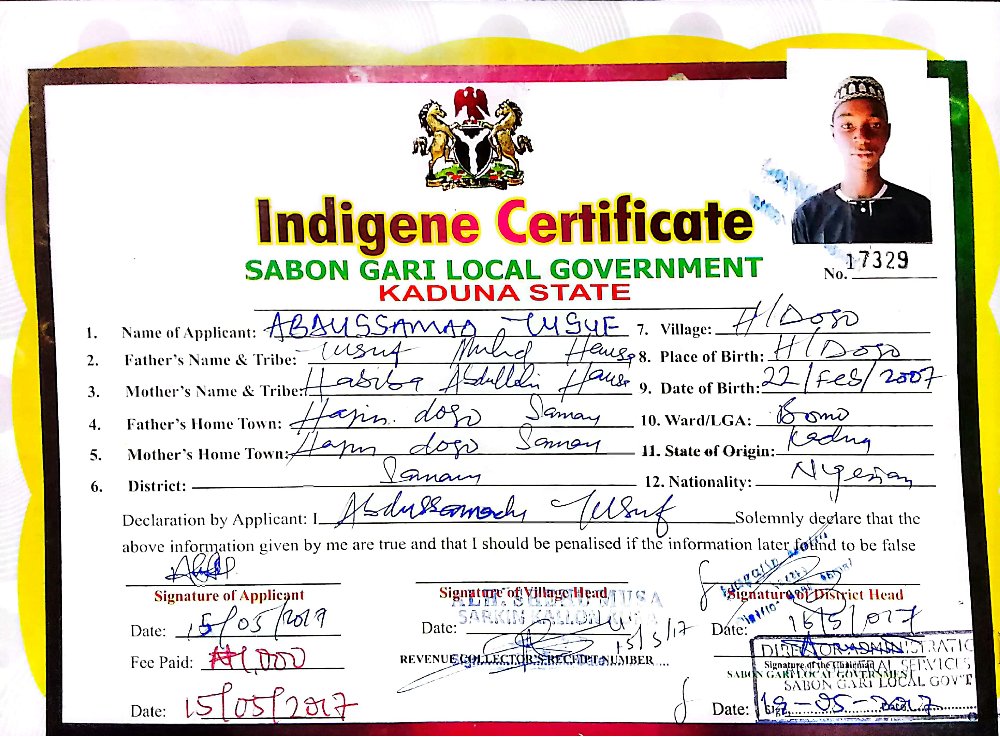 Indigene Certificate
SABON GARI LOCAL GOVERNMENT
KADUNA STATE
No. 17329
1. Name of Applicant: ABDUSSAMAD YUSUF 7. Village: H/Dogo
2. Father's Name & Tribe: Yusuf Muhd Hausa 8. Place of Birth: H/Dogo
3. Mother's Name & Tribe: Habiba Abdullahi Hausa 9. Date of Birth: 22/Feb/2007
4. Father's Home Town: dogo Samaru 10. Ward/LGA: Bomo
5. Mother's Home Town: dogo Samaru 11. State of Origin: Kaduna
6. District: Samaru 12. Nationality: Nigerian
Declaration by Applicant: I Yusuf Solemnly declare that the
above information given by me are true and that I should be penalised if the information later found to be false
Signature of Applicant Signature of Village Head Signature of District Head
ALH. MUSA
SARKIN
Date: 15/05/ Date: 15/5/17 Date: 16/5/017
Fee Paid: ₦1,000 REVENUE COLLECTOR'S RECEIPT NUMBER
DIRECTOR ADMINISTRATIO
Signature of the Chairman
SABON GARI LOCAL GOVERNMENT
SERVICES
SABON GARI LOCAL GOV'T
Date: 15/05/2017 Date: -05-2017